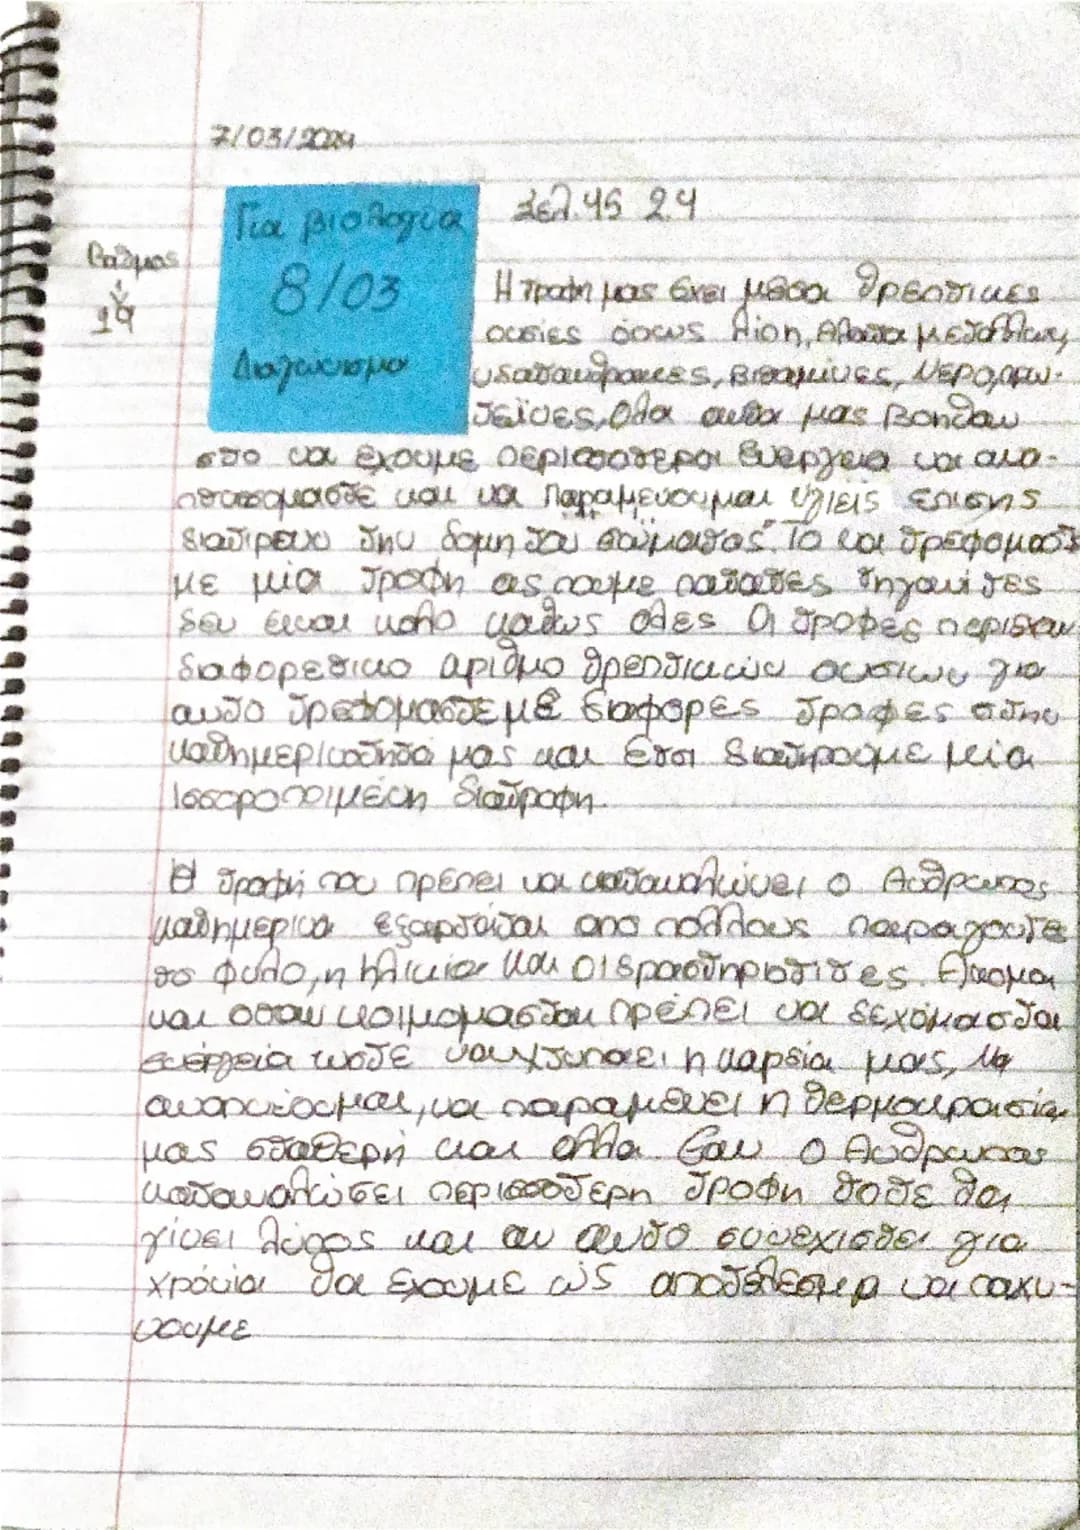 7/03/2024
Σελ. 45 2.4
Για βιολογία
8/03
Διαγώνισμα
Βαθμος
19
Η τροφη μας έχει μεσα θρεπτικες
ουσίες όπως λίπη, Αλατα μετάλλων,
υδατανθρακες, βιταμίνες, Νερο, πρω-
τεϊνες, Ολα αυτα μας Βοηθαν
στο να έχουμε περισσοτερη Ενεργεια να ανα-
πτυσσομαστε και να παραμένουμαι υγιείς επισης
διατιρουν την δομη του σώματος. Το να τρεφομαστε
με μία τροφη ας πουμε πατατες τηγανιτες
δεν ειναι καλο καθως ολες Οι τροφες περιεχουν
διαφορετικο αριθμο θρεπτικων ουσιων για
αυτο τρεφομαστε με διαφορες τροφες στην
καθημερινοτητα μας και ετσι διατηρουμε μια
ισσοροποιμένη διατροφη.
Η τροφή που πρεπει να καταναλώνει ο Ανθρωπος
καθημερινα εξαρταται απο πολλους παραγοντε
το φυλο, η ηλικια και οι δραστηριοτιτες. Ακομα
και οταν κοιμομασται πρέπει να δεχόμασται
ενέργεια ωστε να χτυπαει η καρδία μας, Να
αναπνεουμαι, να παραμένει η θερμοκρασια
μας σταθερη και αλλα Εαν ο Ανθρωπος
καταναλώσει περισσοτερη τροφη τοτε θα
γίνει λίπος και αν αυτο συνεχιστει για
χρόνια θα έχουμε ώς αποτέλεσμα να παχυ-
νουμε